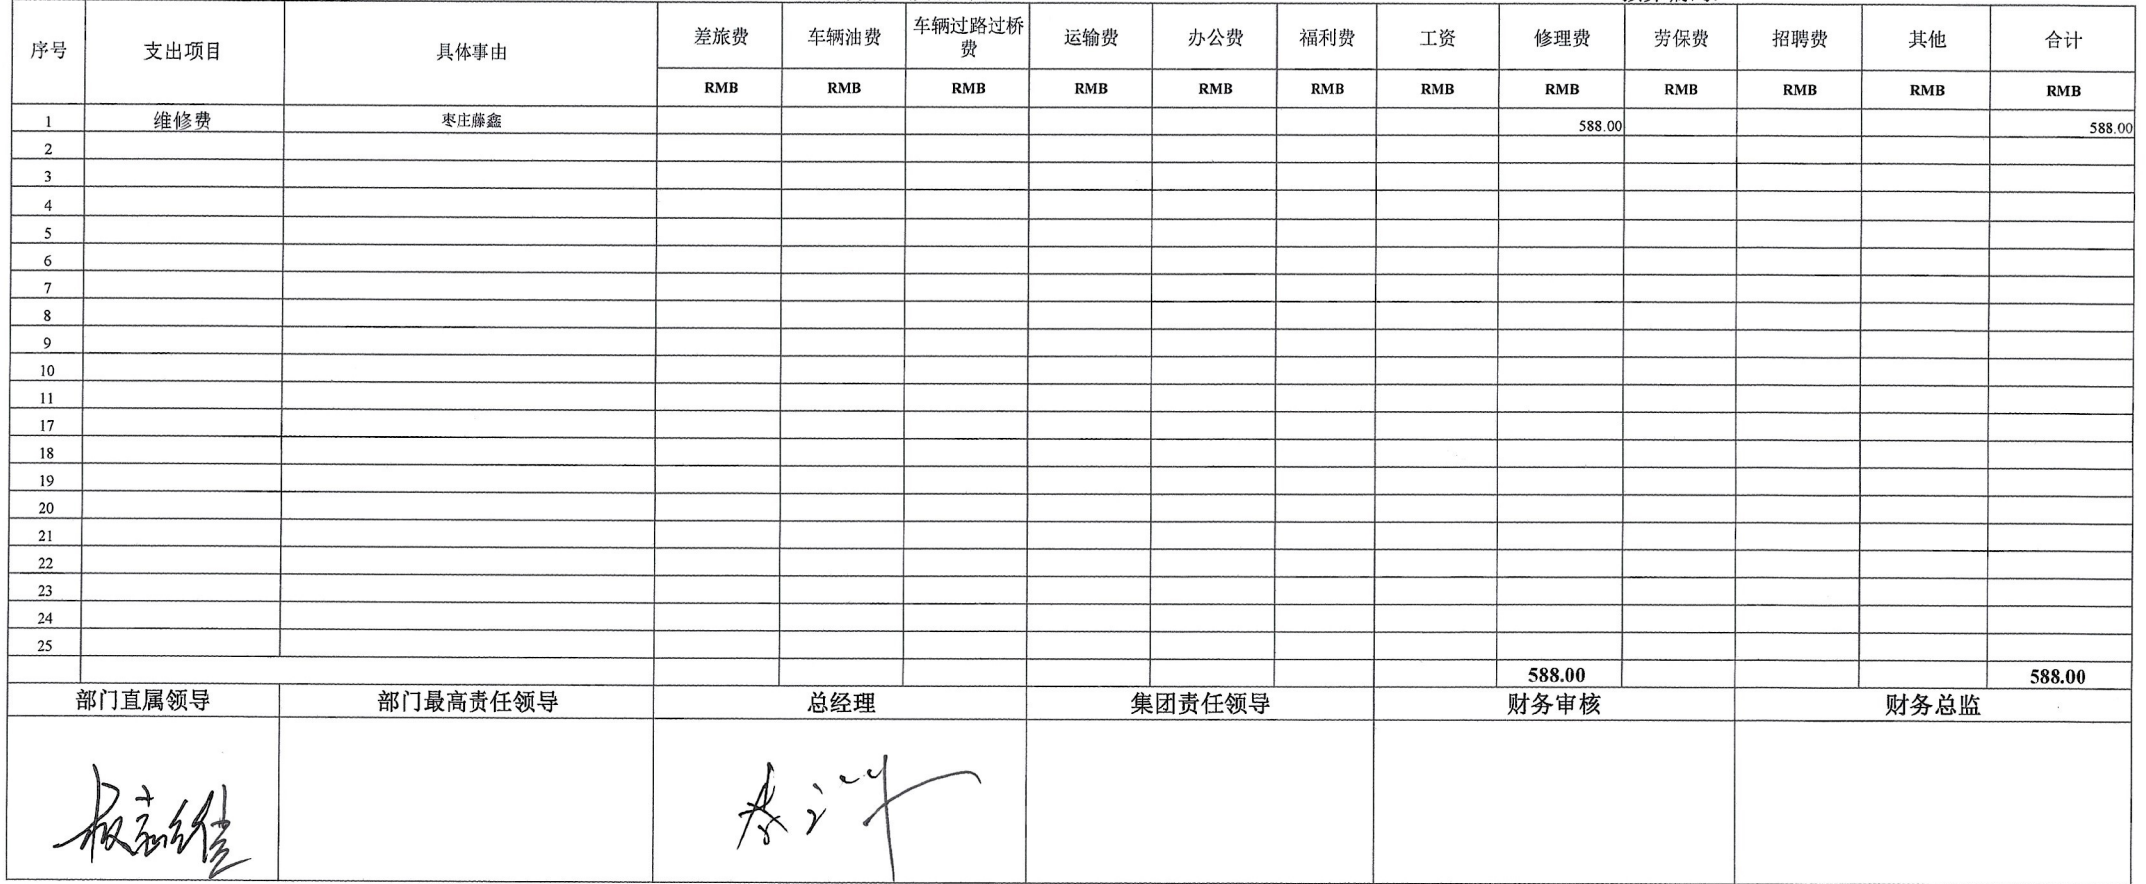 序号 支出项目 具体事由 差旅费 车辆油费 车辆过路过桥费 运输费 办公费 福利费 工资 修理费 劳保费 招聘费 其他 合计
RMB RMB RMB RMB RMB RMB RMB RMB RMB RMB RMB RMB
1 维修费 枣庄藤鑫 588.00 588.00
2
3
4
5
6
7
8
9
10
11
17
18
19
20
21
22
23
24
25
588.00 588.00
部门直属领导 部门最高责任领导 总经理 集团责任领导 财务审核 财务总监